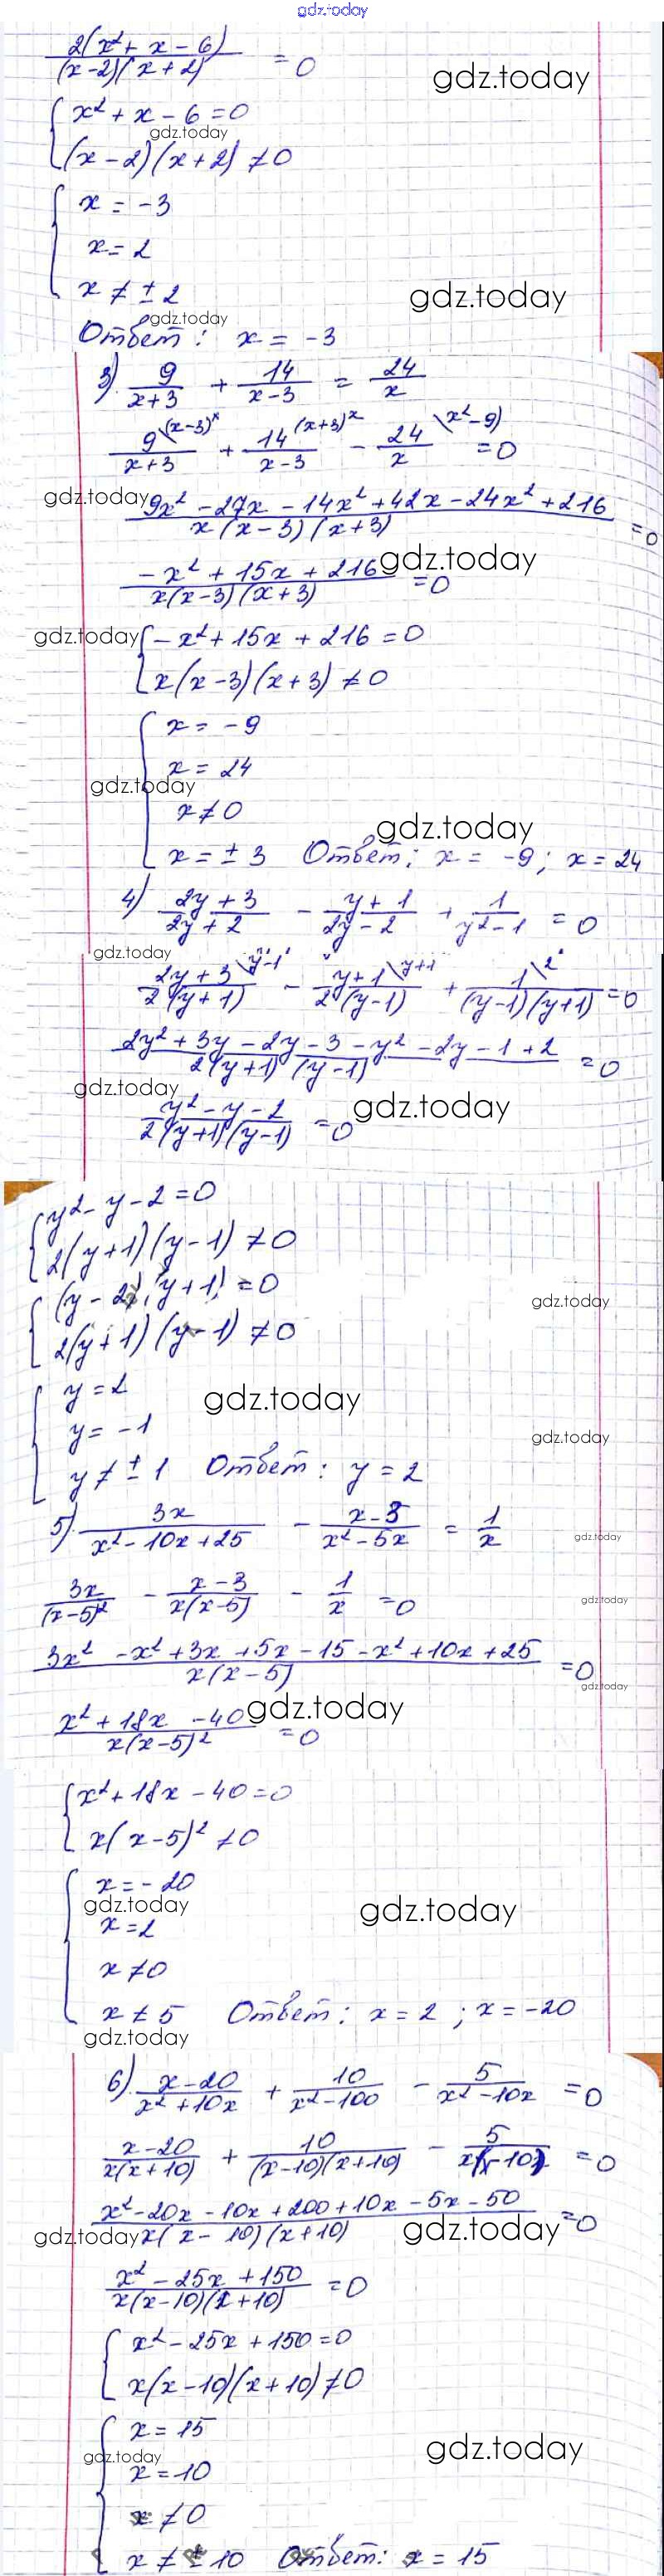 gdz.today
2(x² + x - 6) / (x-2)(x+2) = 0
gdz.today
{ x² + x - 6 = 0
gdz.today
(x - 2)(x + 2) ≠ 0
{ x = -3
x = 2
x ≠ ± 2
gdz.today
gdz.today
Ответ: x = -3
3) 9/(x+3) + 14/(x-3) = 24/x
9\(x-3)x/(x+3) + 14(x+3)x/(x-3) - 24\(x²-9)/x = 0
gdz.today
9x² - 27x - 14x² + 42x - 24x² + 216 / x(x-3)(x+3) = 0
-x² + 15x + 216 / x(x-3)(x+3) = 0
gdz.today
gdz.today
{ -x² + 15x + 216 = 0
x(x-3)(x+3) ≠ 0
{ x = -9
x = 24
gdz.today
x ≠ 0
gdz.today
x = ± 3 Ответ: x = -9; x = 24
4) (2y+3)/(2y+2) - (y+1)/(2y-2) + 1/(y²-1) = 0
gdz.today
2y+3\y-1/2(y+1) - y+1\y+1/2(y-1) + 1\2/(y-1)(y+1) = 0
2y² + 3y - 2y - 3 - y² - 2y - 1 + 2 / 2(y+1)(y-1) = 0
gdz.today
gdz.today
y² - y - 2 / 2(y+1)(y-1) = 0
{ y² - y - 2 = 0
2(y+1)(y-1) ≠ 0
{ (y-2)(y+1) = 0
gdz.today
2(y+1)(y-1) ≠ 0
{ y = 2
gdz.today
y = -1
gdz.today
y ≠ ± 1 Ответ: y = 2
5) 3x/(x² - 10x + 25) - (x-3)/(x² - 5x) = 1/x
gdz.today
3x/(x-5)² - (x-3)/x(x-5) - 1/x = 0
gdz.today
3x² - x² + 3x + 5x - 15 - x² + 10x + 25 / x(x-5) = 0
gdz.today
x² + 18x - 40 / x(x-5)² = 0
gdz.today
{ x² + 18x - 40 = 0
x(x-5)² ≠ 0
{ x = -20
gdz.today
gdz.today
x = 2
x ≠ 0
x ≠ 5 Ответ: x = 2; x = -20
gdz.today
6) (x-20)/(x² + 10x) + 10/(x² - 100) - 5/(x² - 10x) = 0
(x-20)/x(x+10) + 10/(x-10)(x+10) - 5/x(x-10) = 0
x² - 20x - 10x + 200 + 10x - 5x - 50 / x(x-10)(x+10) = 0
gdz.today
gdz.today
x² - 25x + 150 / x(x-10)(x+10) = 0
{ x² - 25x + 150 = 0
x(x-10)(x+10) ≠ 0
{ x = 15
gdz.today
gdz.today
x = 10
x ≠ 0
x ≠ ± 10 Ответ: x = 15